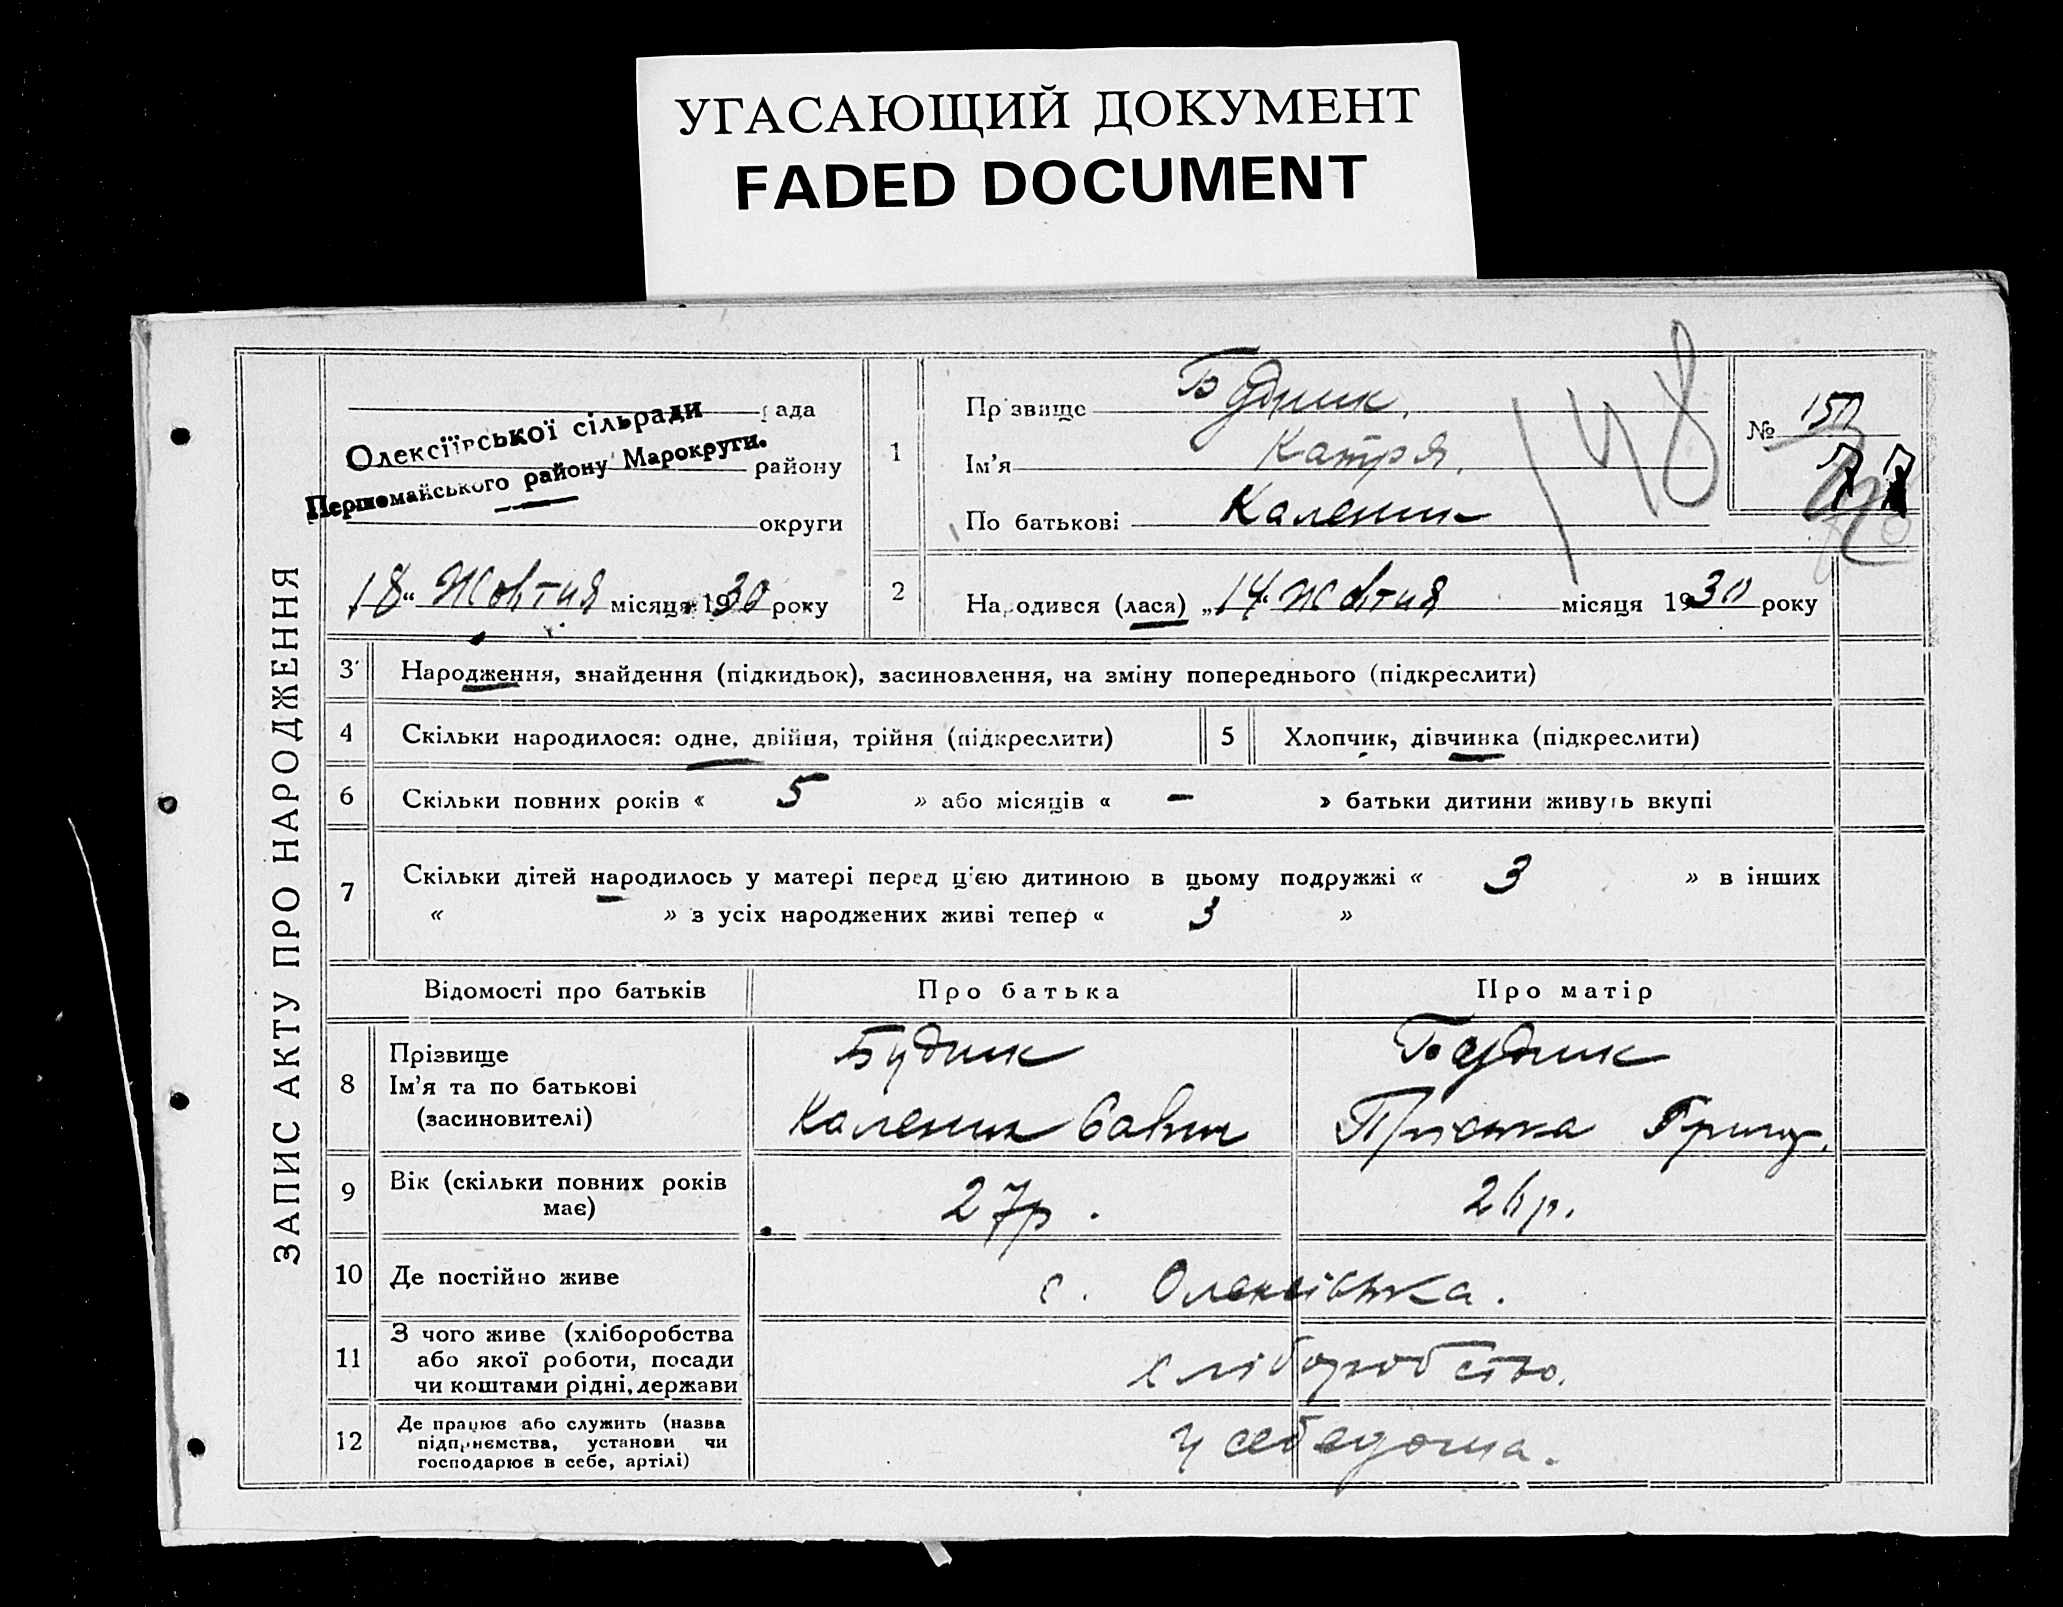 УГАСАЮЩИЙ ДОКУМЕНТ
FADED DOCUMENT
ЗАПИС АКТУ ПРО НАРОДЖЕННЯ
рада
Олексіївської сільради
району
Першомайського району Марокруги.
округи
18 " Жовтня місяця 1930 року
1
Прізвище Будник.
Ім'я Катря.
По батькові Каленик
148
№ 150
2
Народився (лася) „ 14 " Жовтня місяця 1930 року
3 Народження, знайдення (підкидьок), засиновлення, на зміну попереднього (підкреслити)
4 Скільки народилося: одне, двійня, трійня (підкреслити)
5 Хлопчик, дівчинка (підкреслити)
6 Скільки повних років « 5 » або місяців « - » батьки дитини живуть вкупі
7 Скільки дітей народилось у матері перед ц'єю дитиною в цьому подружжі « 3 » в інших
« » з усіх народжених живі тепер « 3 »
Відомості про батьків Про батька Про матір
8 Прізвище Будник Будник
Ім'я та по батькові
(засиновителі) Каленик Савич Приська Григ.
9 Вік (скільки повних років
має) 27р. 26р.
10 Де постійно живе с. Олексіївка.
11 З чого живе (хліборобства
або якої роботи, посади
чи коштами рідні, держави хліборобство.
12 Де працює або служить (назва
підприємства, установи чи
господарює в себе, артілі) У себе дома.